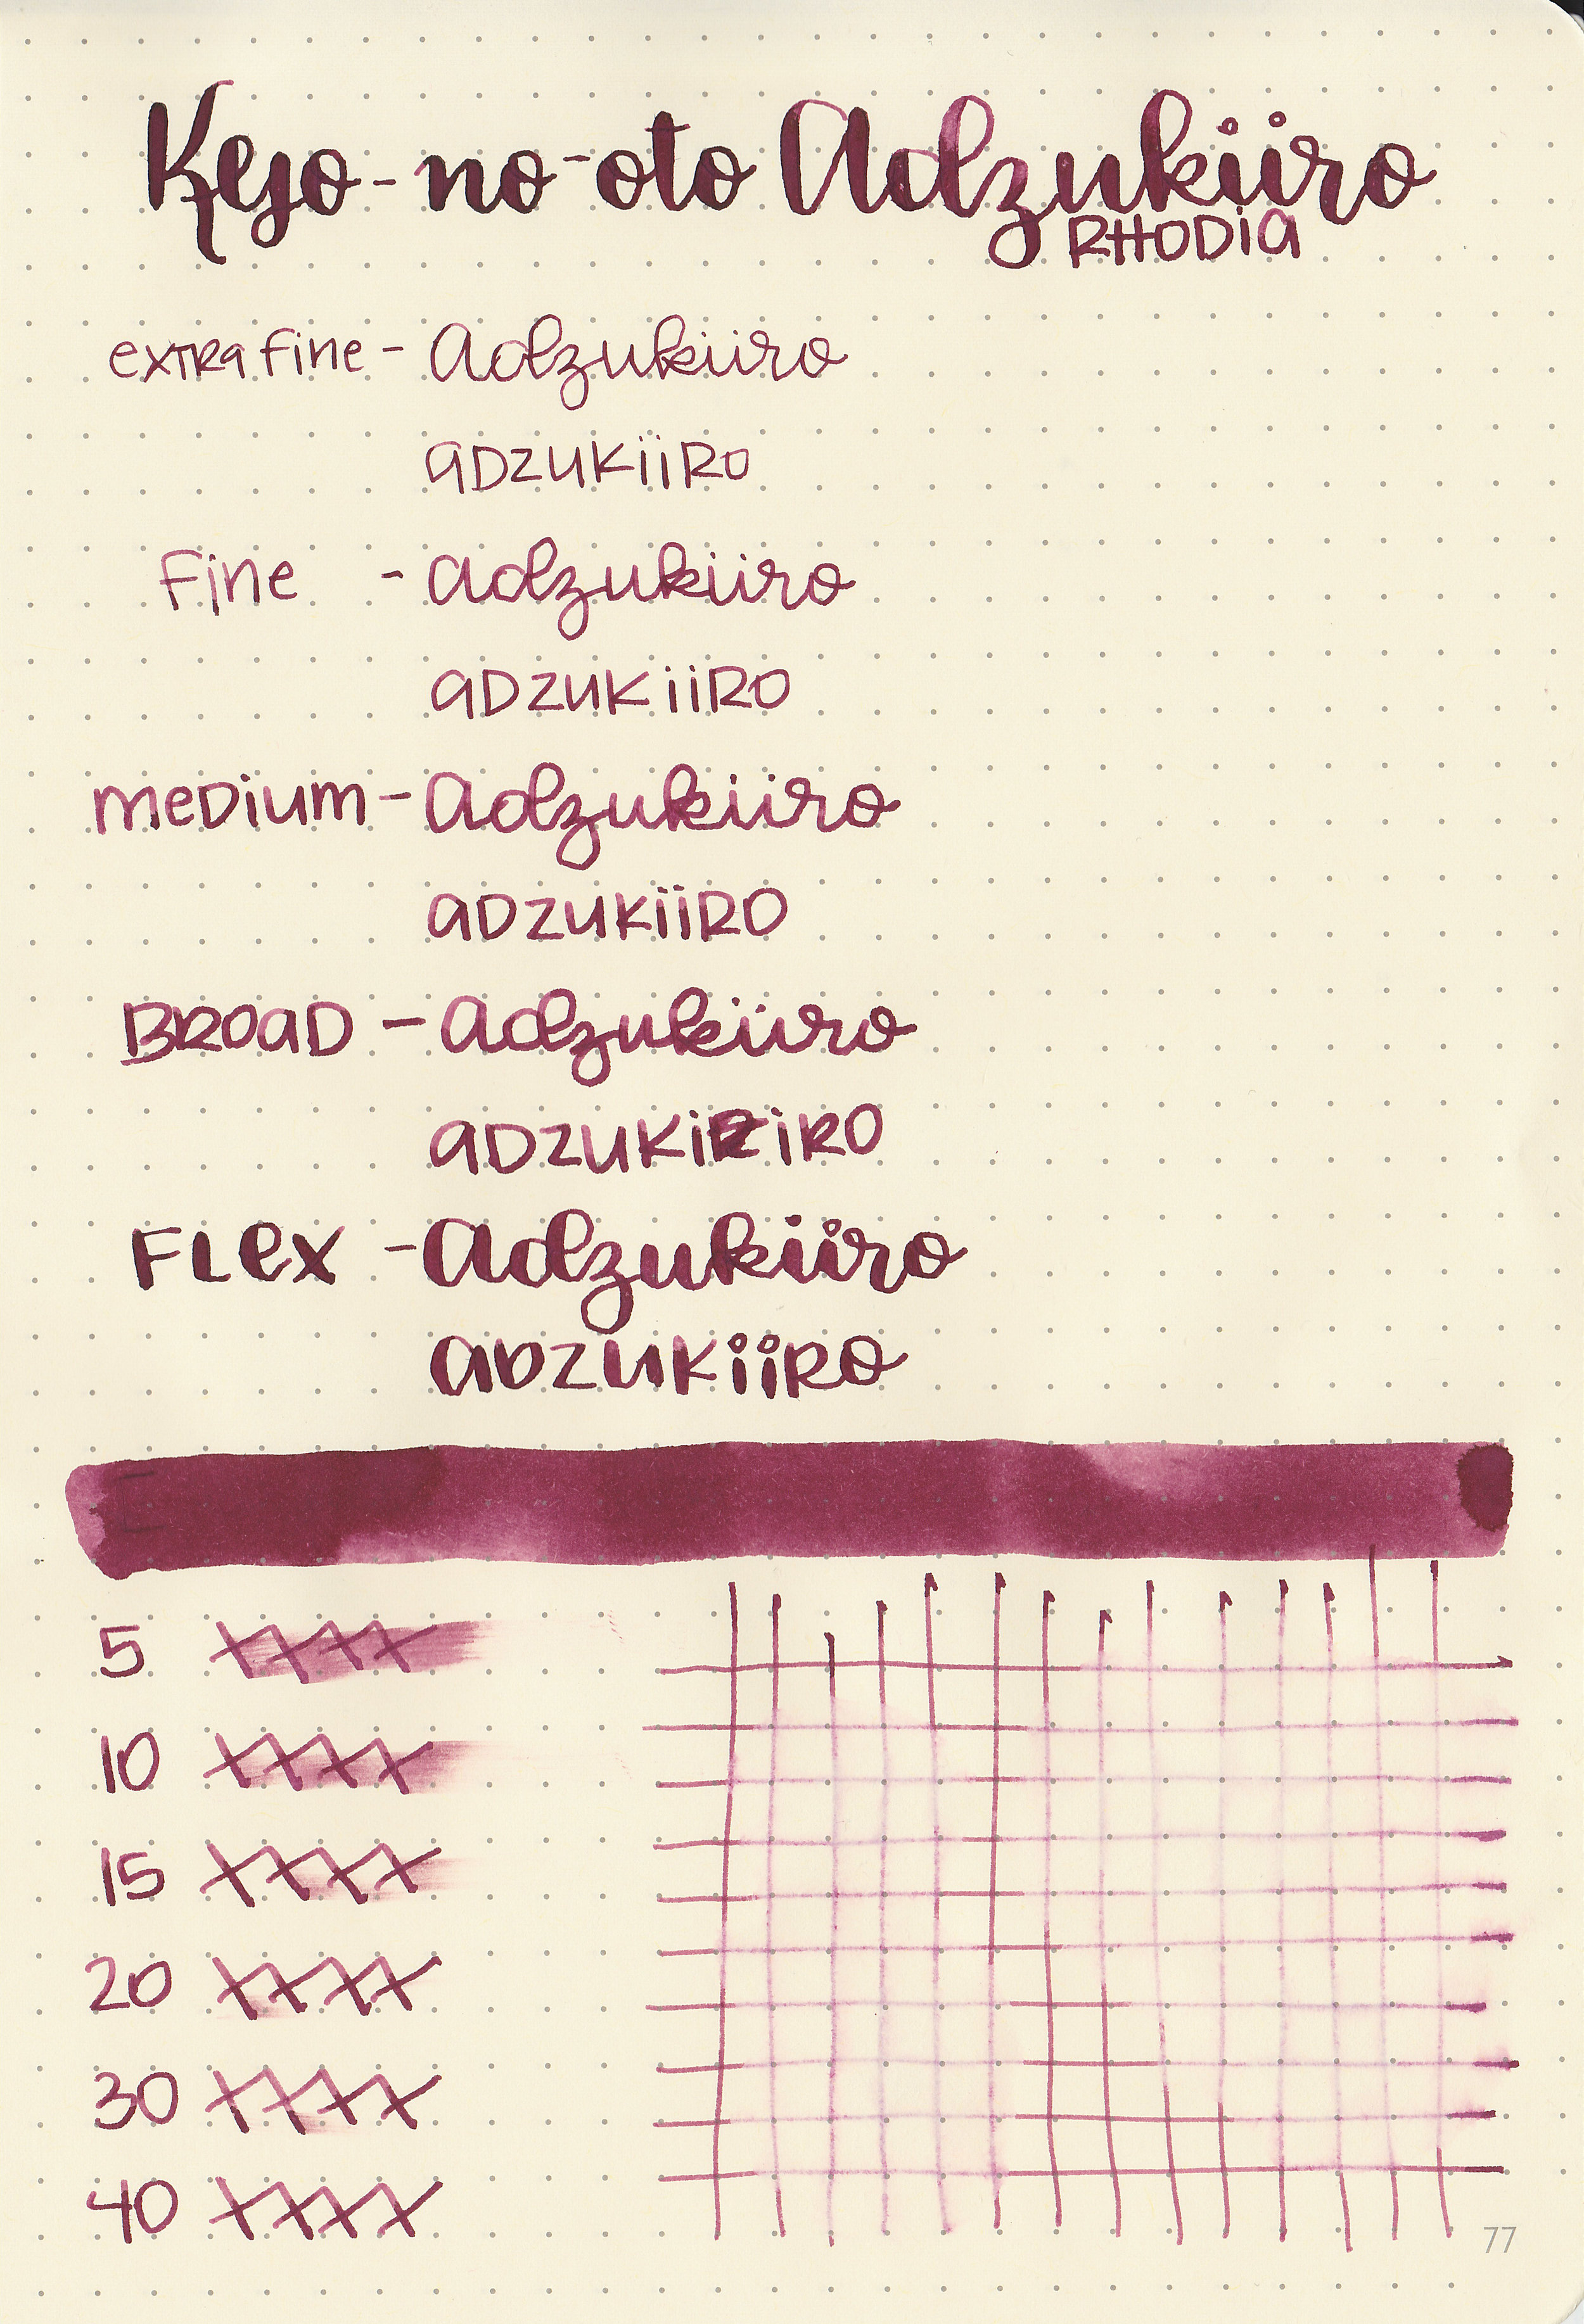 Kyo-no-oto Adzukiiro
RHODIA
extra fine - Adzukiiro
ADZUKIIRO
Fine - Adzukiiro
ADZUKIIRO
MEDIUM - Adzukiiro
ADZUKIIRO
BROAD - Adzukiiro
ADZUKIIRO
FLEX - Adzukiiro
ADZUKIIRO
5 XXXX
10 XXXX
15 XXXX
20 XXXX
30 XXXX
40 XXXX
77